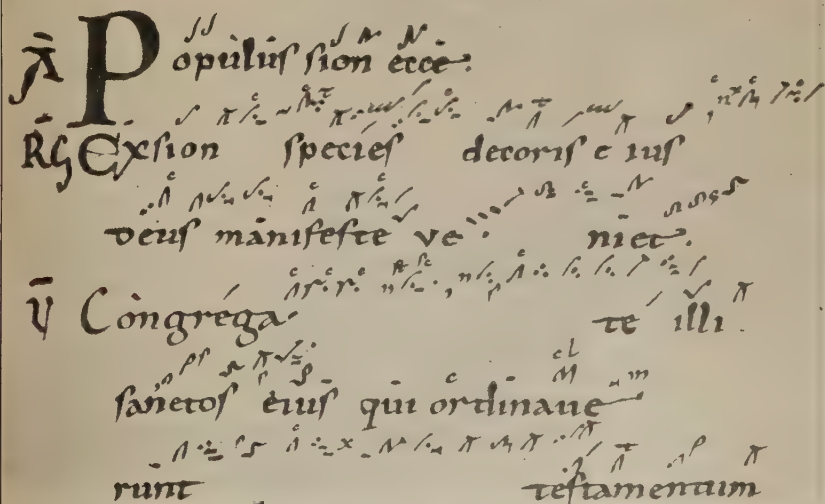 Ā Populus sion ecce.
RG Exsion species decoris eius
deus manifeste ve niet.
V Congrega te illi.
sanctos eius qui ordinaue
runt testamentum